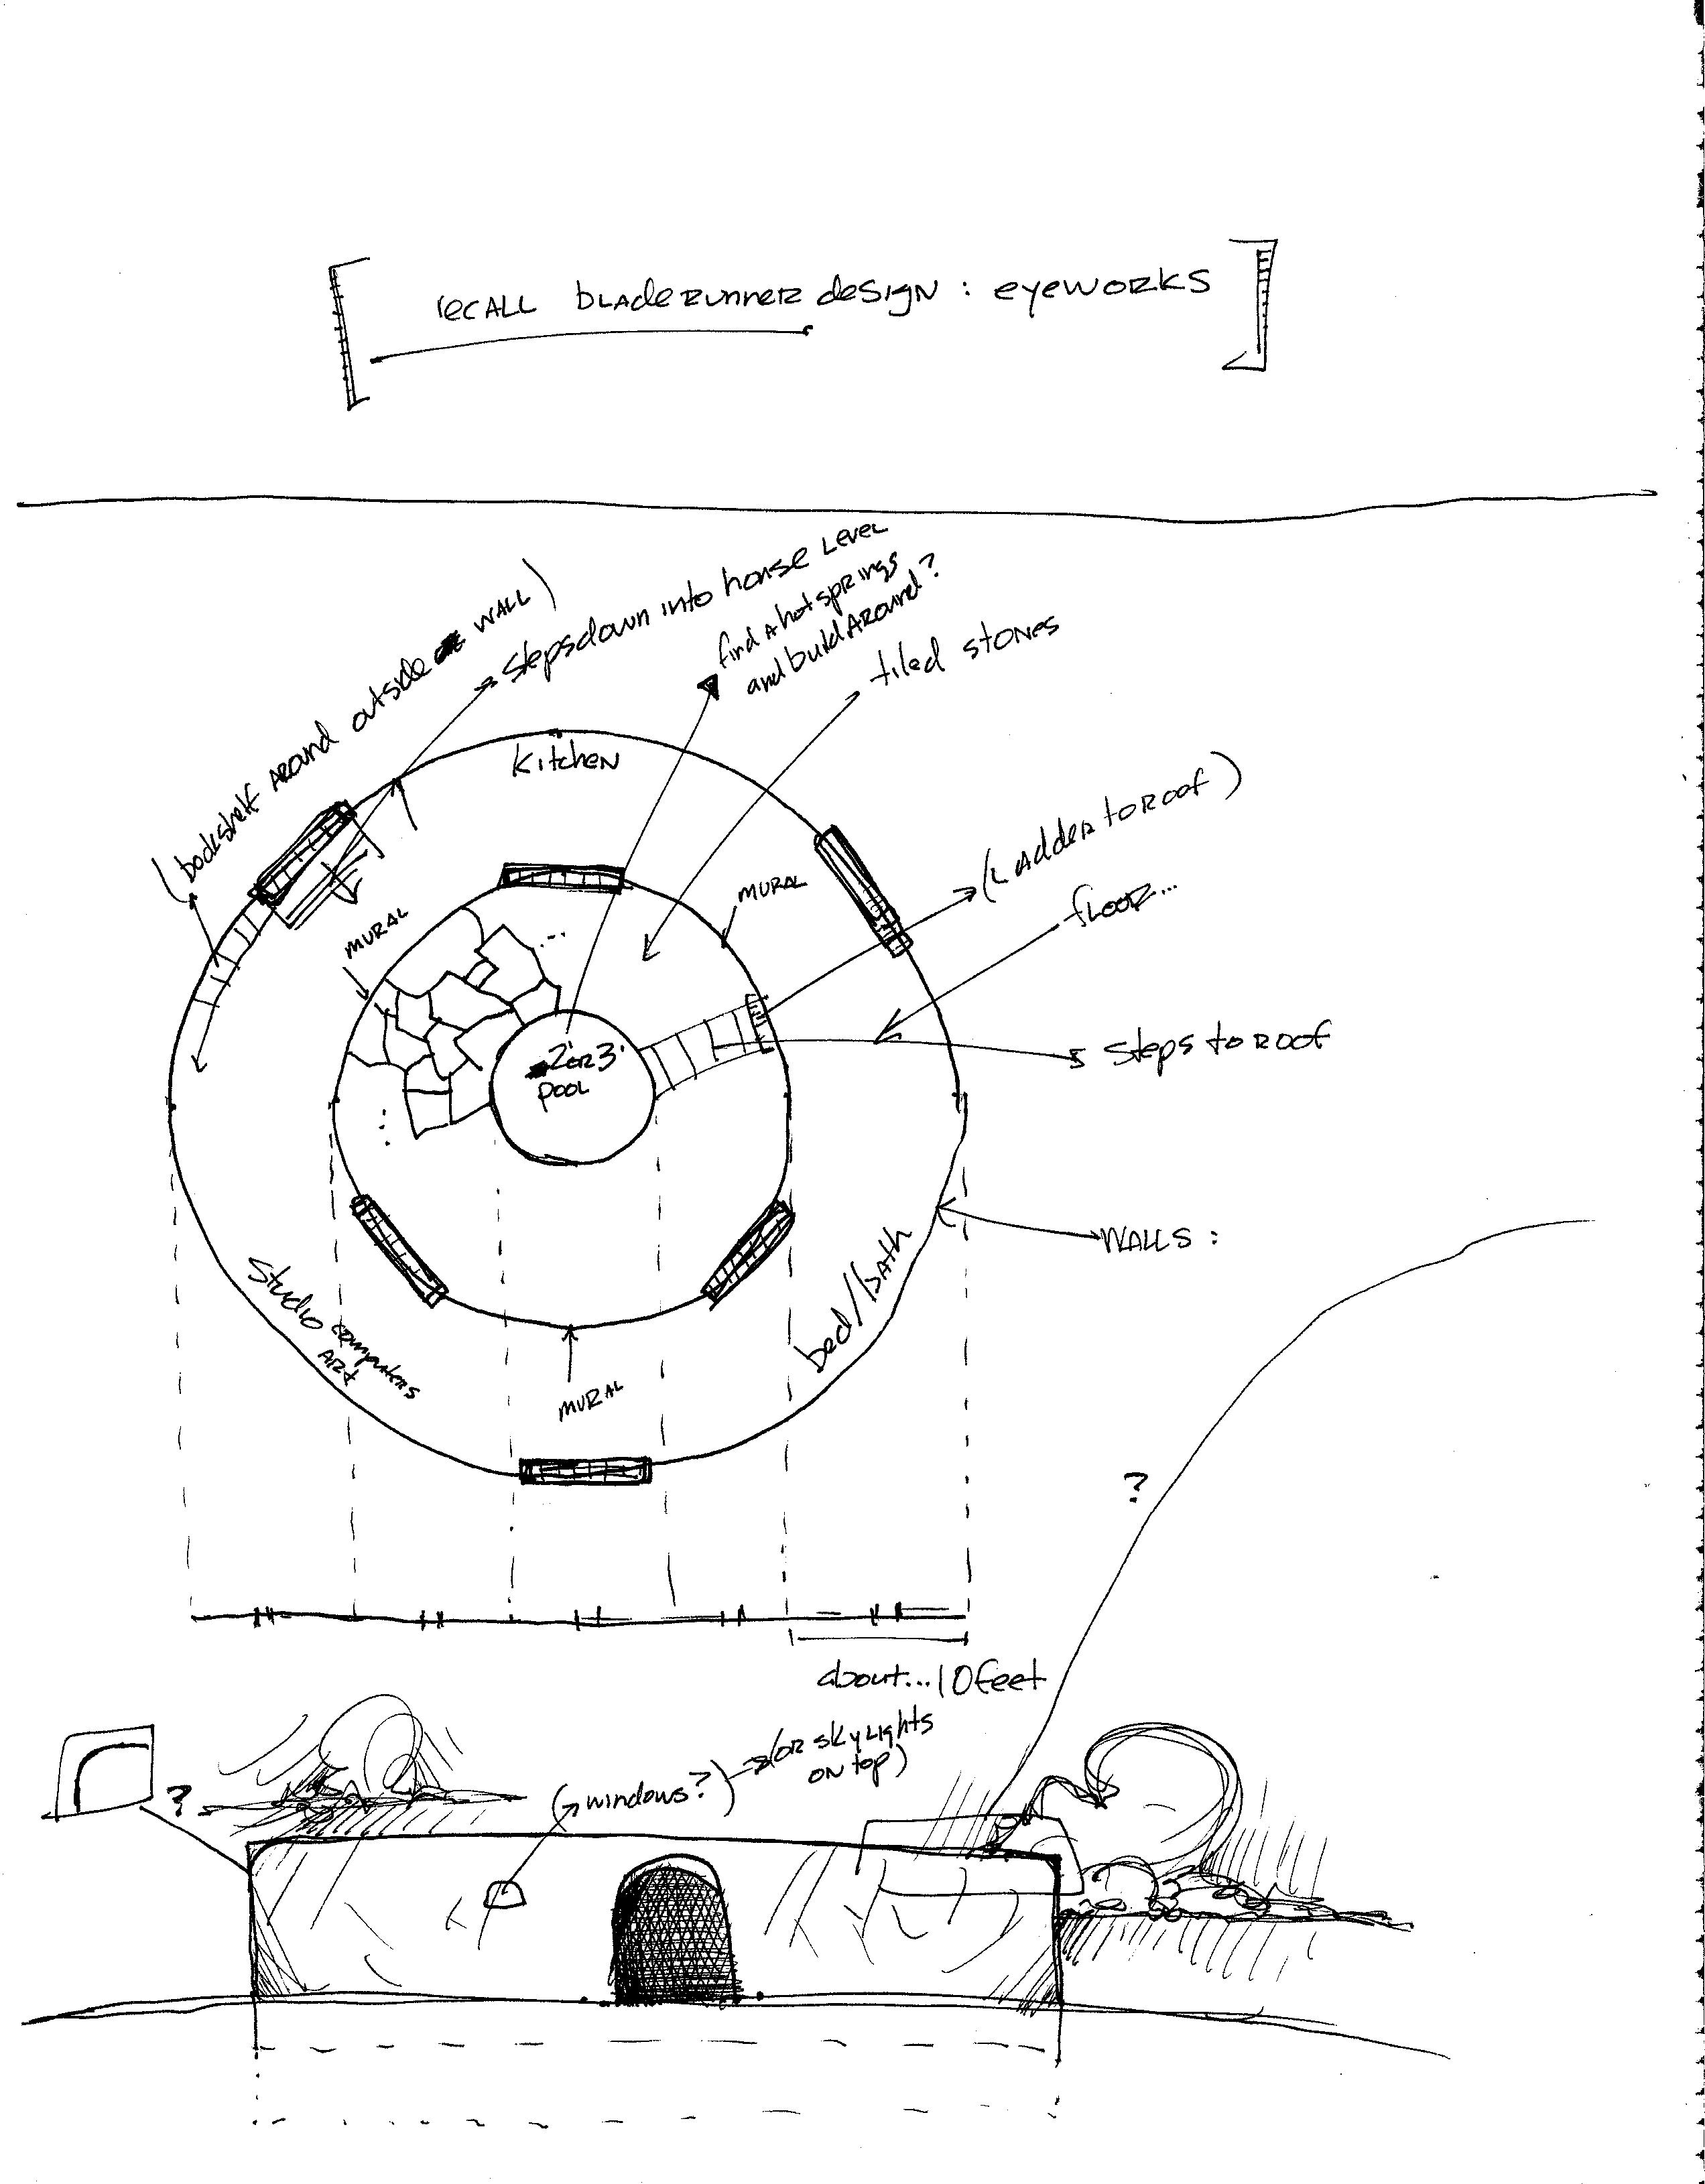 recall bladerunner design : eyeworks
(bookshelf around outside wall)
steps down into house level
find a hot springs
and build around?
tiled stones
kitchen
mural
mural
(Ladder to roof)
floor...
2' or 3'
pool
steps to roof
walls :
studio computers
art
bed/bath
mural
?
about...10 feet
?
(windows?)
(or skylights
on top)